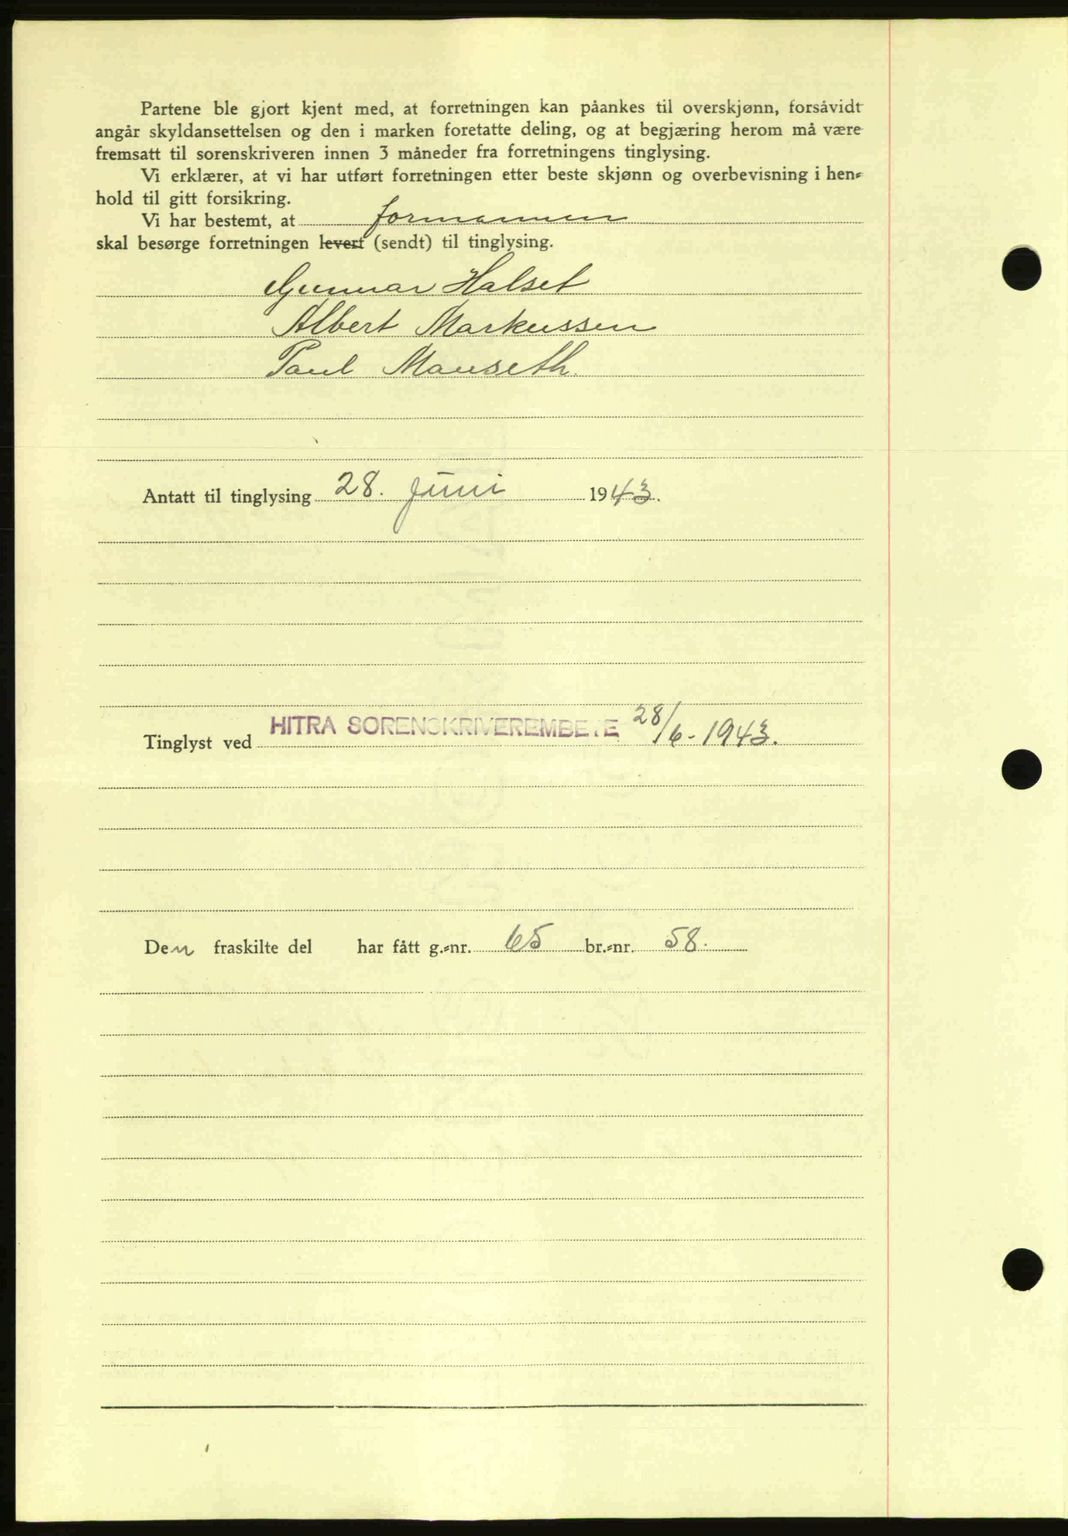 Partene ble gjort kjent med, at forretningen kan påankes til overskjønn, forsåvidt
angår skyldansettelsen og den i marken foretatte deling, og at begjæring herom må være
fremsatt til sorenskriveren innen 3 måneder fra forretningens tinglysing.
Vi erklærer, at vi har utført forretningen etter beste skjønn og overbevisning i hen-
hold til gitt forsikring.
Vi har bestemt, at formannen
skal besørge forretningen levert (sendt) til tinglysing.
Gunnar Halset
Albert Markussen
Paul Mauseth.
Antatt til tinglysing 28. juni 1943.
Tinglyst ved HITRA SORENSKRIVEREMBETE 28/6-1943.
Den fraskilte del har fått g.-nr. 65 br.-nr. 58.